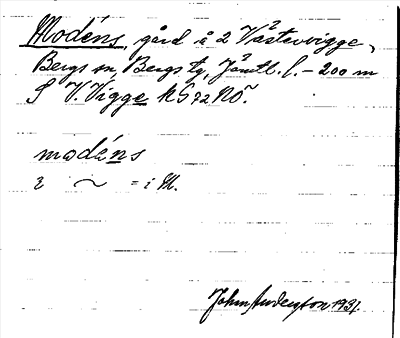 Modéns, gård å 2 Västervigge,
Bergs sn, Bergs tg, Jämtl. l. – 200 m
S V. Vigge kS 72 NO.
modéns
i ~ = i M.
John Anderzon 1931.